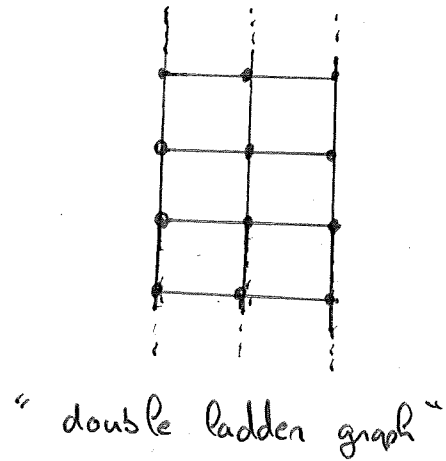 “ double ladder graph “